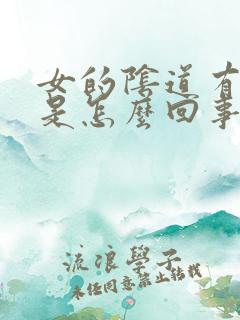 女的陰道有
是怎麼回事
流浪學子
未经同意禁止转载